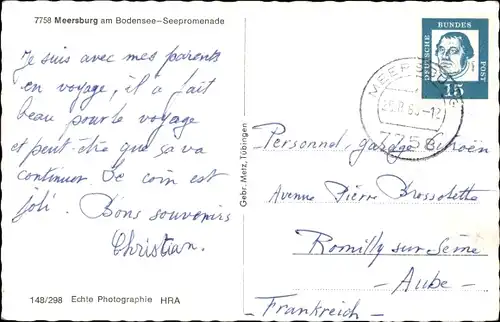 7758 Meersburg am Bodensee-Seepromenade
Je suis avec mes parents
en voyage, il a fait
beau pour le voyage
et peut-être que ça va
continuer. Ce coin est
joli. Bons souvenirs
Christian.
148/298 Echte Photographie HRA
Gebr. Metz, Tübingen
DEUTSCHE BUNDES POST
15
MEERSBURG
7758
Personnel, garage Citroën
Avenue Pierre Brossolette
Romilly sur Seine
- Aube -
- Frankreich -